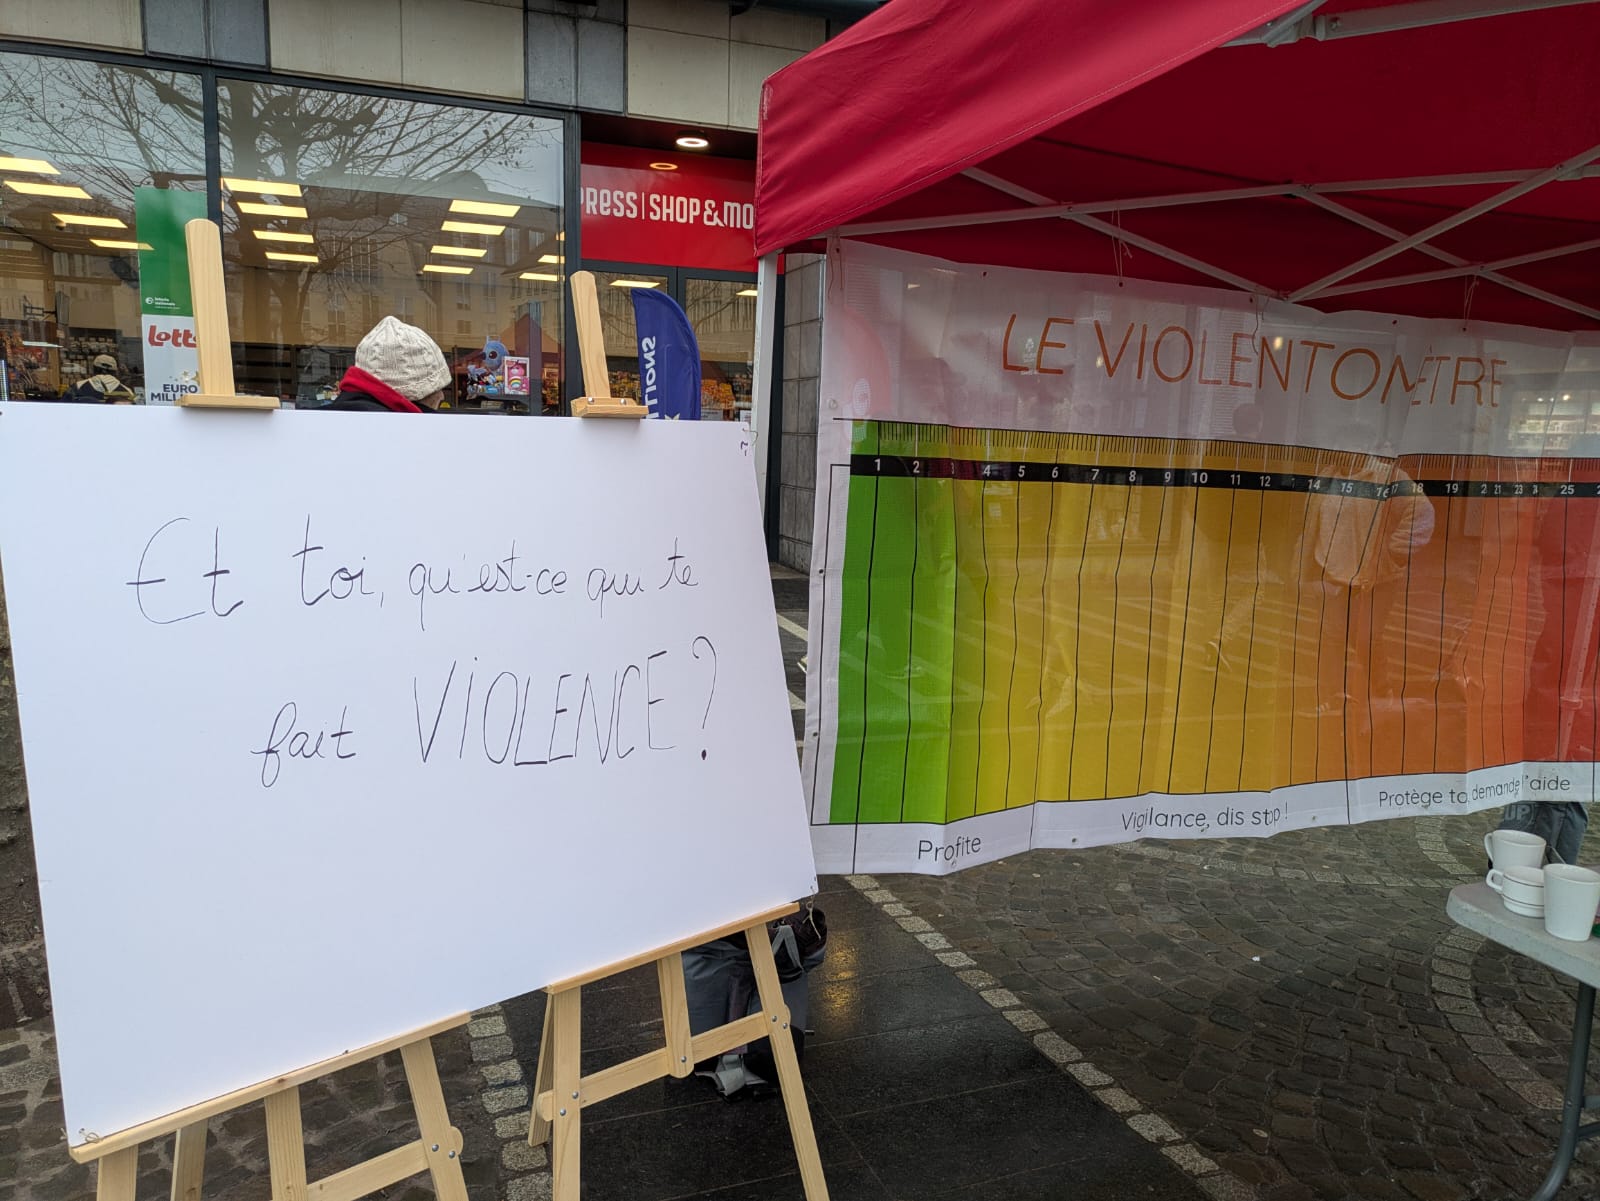 PRESS | SHOP & MO
loterie nationale
Lotto
EURO
MILLI
LLIONS
Et toi, qu'est-ce qui te
fait VIOLENCE ?
LE VIOLENTOMÈTRE
1 2 3 4 5 6 7 8 9 10 11 12 14 15 16 17 18 19 21 23 25
Profite
Vigilance, dis stop !
Protège toi, demande l'aide